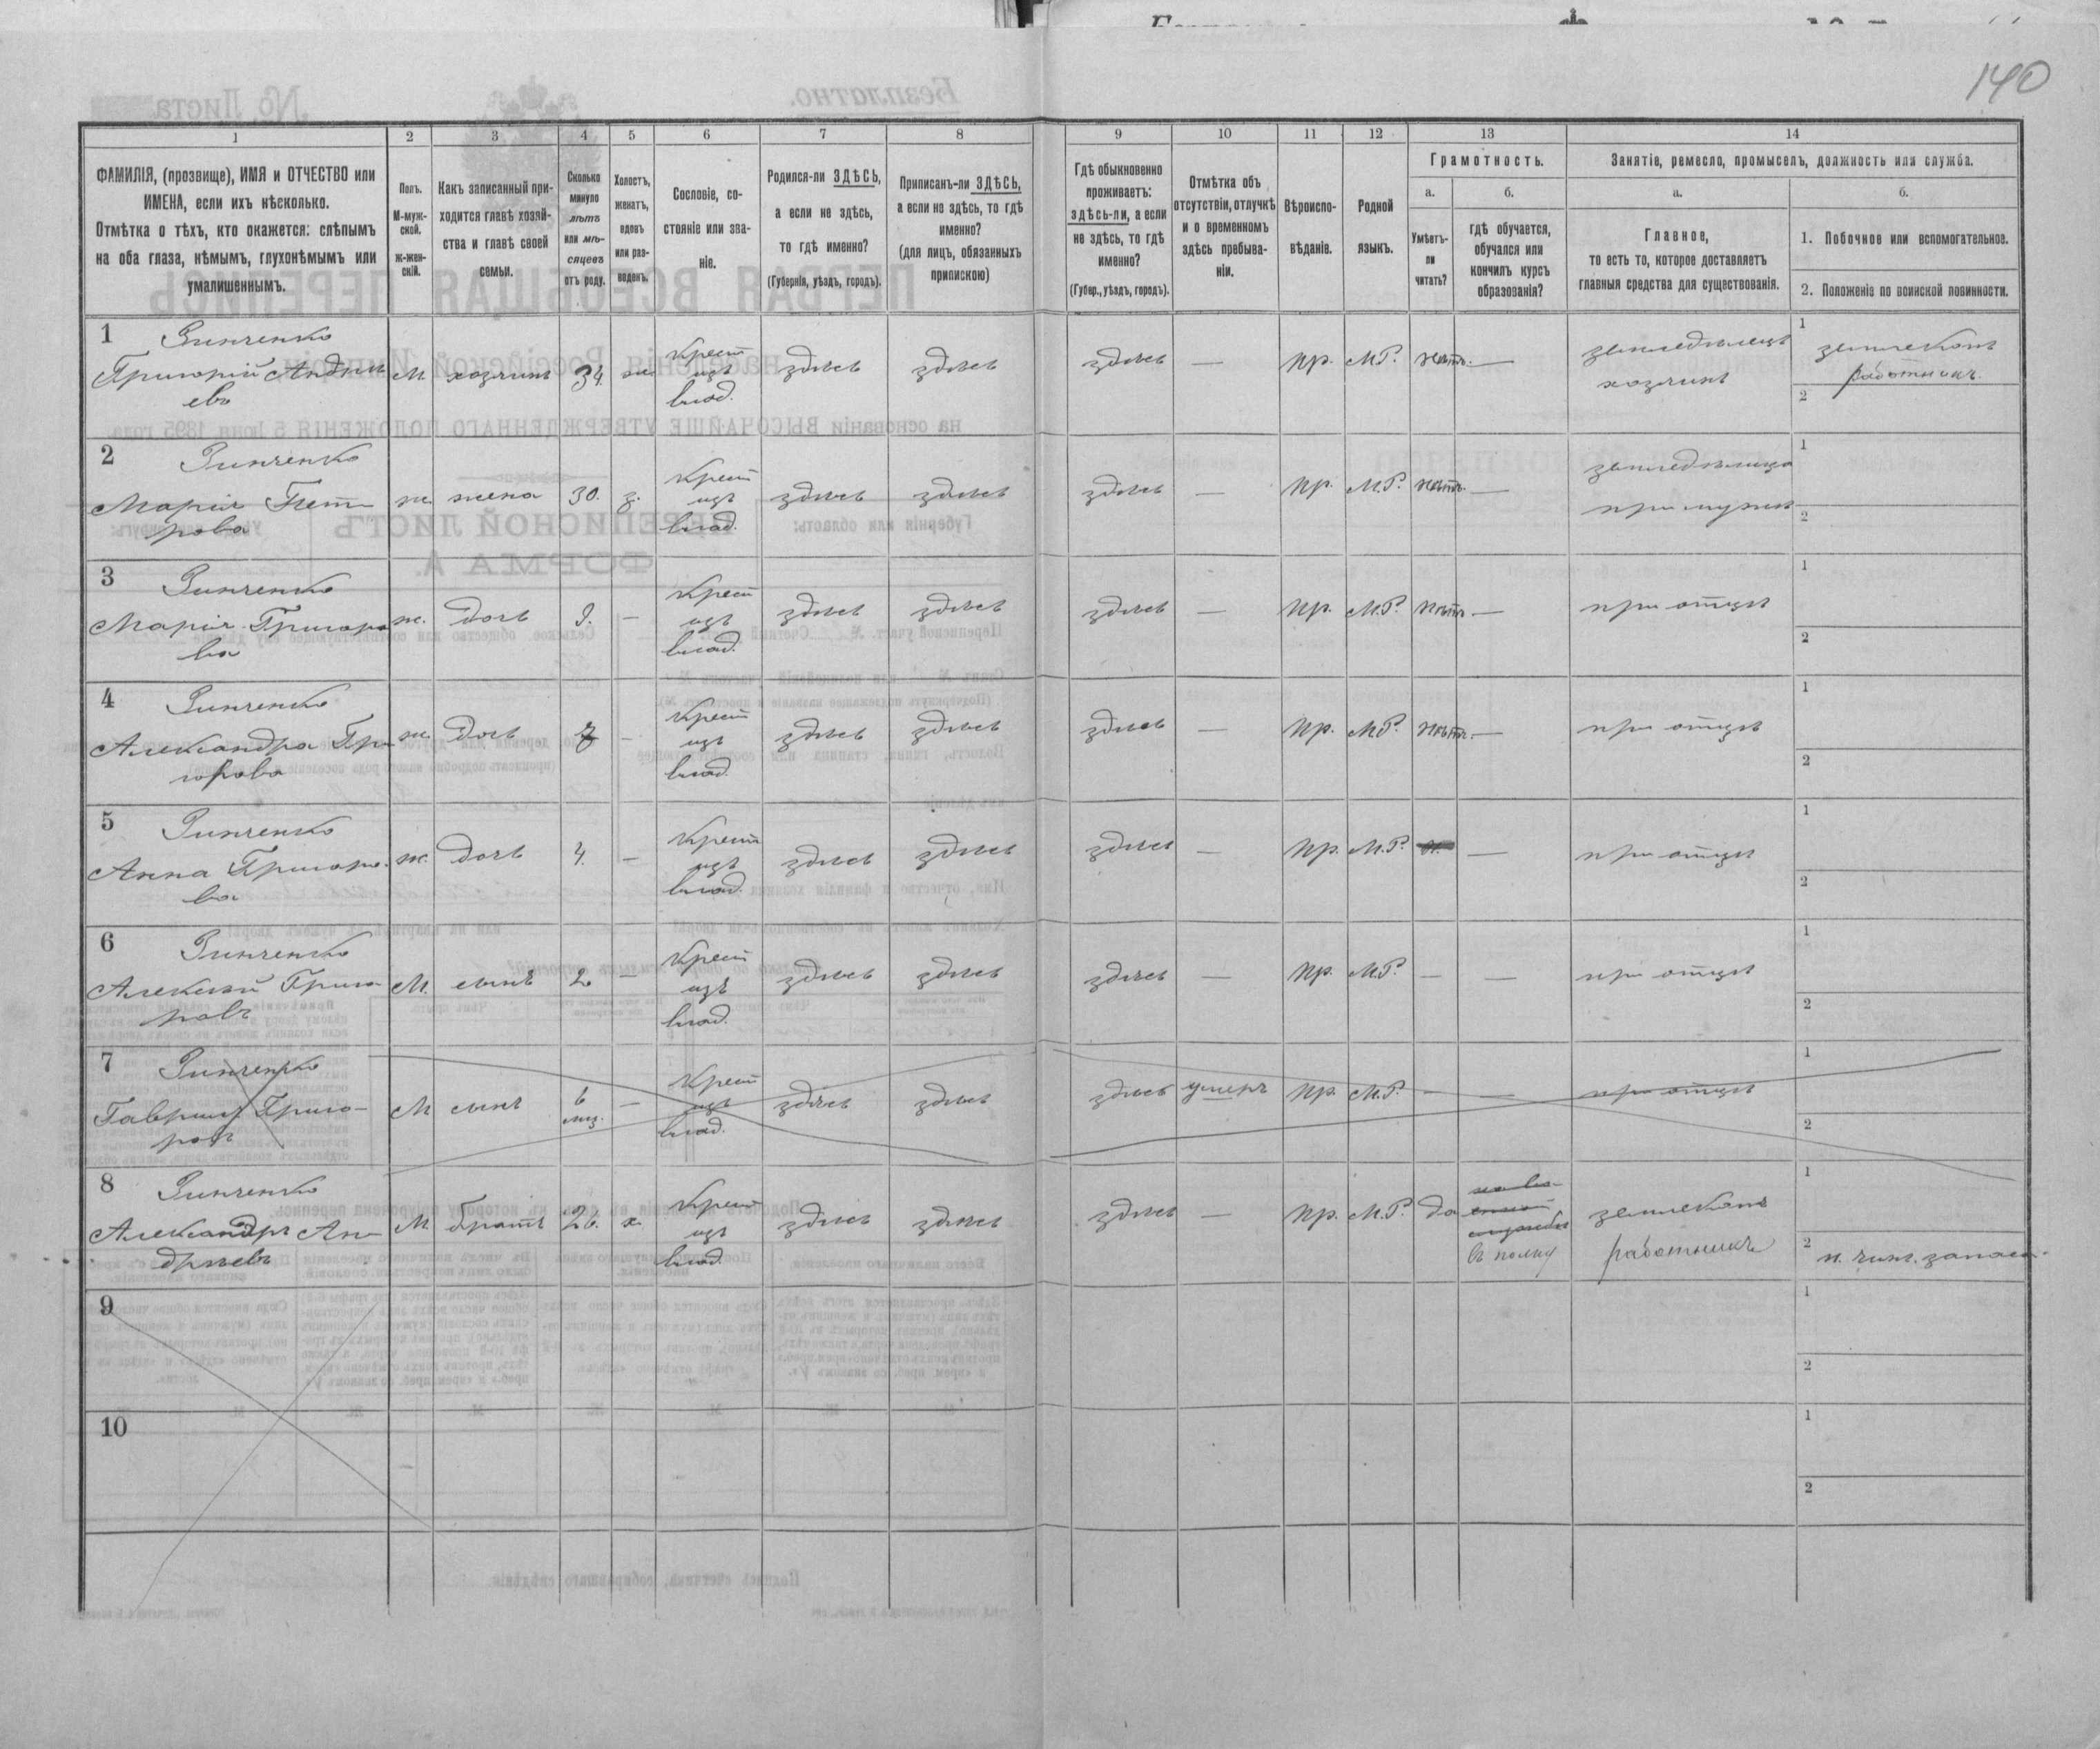 140
1 2 3 4 5 6 7 8 9 10 11 12 13 14
ФАМИЛІЯ, (прозвище), ИМЯ и ОТЧЕСТВО или
ИМЕНА, если ихъ нѣсколько.
Отмѣтка о тѣхъ, кто окажется: слѣпымъ
на оба глаза, нѣмымъ, глухонѣмымъ или
умалишеннымъ.
Полъ.
М-муж-
ской.
Ж-жен-
скій.
Какъ записанный при-
ходится главѣ хозяй-
ства и главѣ своей
семьи.
Сколько
минуло
лѣтъ
или мѣ-
сяцевъ
отъ роду.
Холостъ,
женатъ,
вдовъ
или раз-
веденъ.
Сословіе, со-
стояніе или зва-
ніе.
Родился-ли ЗДѢСЬ,
а если не здѣсь,
то гдѣ именно?
(Губернія, уѣздъ, городъ).
Приписанъ-ли ЗДѢСЬ,
а если не здѣсь, то гдѣ
именно?
(для лицъ, обязанныхъ
припискою)
Гдѣ обыкновенно
проживаетъ:
здѣсь-ли, а если
не здѣсь, то гдѣ
именно?
(Губер., уѣздъ, городъ).
Отмѣтка объ
отсутствіи, отлучкѣ
и о временномъ
здѣсь пребыва-
ніи.
Вѣроиспо-
вѣданіе.
Родной
языкъ.
Грамотность.
а. б.
Умѣетъ-
ли
читать?
гдѣ обучается,
обучался или
кончилъ курсъ
образованія?
Занятіе, ремесло, промыселъ, должность или служба.
а. б.
Главное,
то есть то, которое доставляетъ
главныя средства для существованія.
1. Побочное или вспомогательное.
2. Положеніе по воинской повинности.
1 Зинченко
Григорій Андре
евъ
М. хозяинъ 34. ж
Крест
изъ
влад.
здѣсь здѣсь здѣсь — пр. М.Р. нѣтъ. —
земледѣлецъ
хозяинъ
1 землекопъ
работникъ.
2
2 Зинченко
Марія Пет
рова
ж. жена 30. з.
Крест
изъ
влад.
здѣсь здѣсь здѣсь — пр. М.Р. нѣтъ. —
земледѣлица
при мужѣ
1
2
3 Зинченко
Марія Григоро
ва
ж. дочь 9. —
Крест
изъ
влад.
здѣсь здѣсь здѣсь — пр. М.Р. нѣтъ —
при отцѣ
1
2
4 Зинченко
Александра Гри
горова
ж. дочь 7 -
Крест
изъ
влад.
здѣсь здѣсь здѣсь — пр. М.Р. нѣтъ. —
при отцѣ
1
2
5 Зинченко
Анна Григоро-
ва
ж. дочь 4. —
Крест
изъ
влад.
здѣсь здѣсь здѣсь — пр. М.Р. —
при отцѣ
1
2
6 Зинченко
Алексѣй Григо
ровъ
М. сынъ 2 —
Крест
изъ
влад.
здѣсь здѣсь здѣсь — пр. М.Р. — —
при отцѣ
1
2
7 Зинченко
Гавриил Григо-
ров
М сынъ 6
мц. —
Крест
изъ
влад.
здѣсь здѣсь здѣсь умеръ пр. М.Р. — —
при отцѣ
1
2
8 Зинченко
Александръ Ан-
дреевъ
М братъ 26. х.
Крест
изъ
влад.
здѣсь здѣсь здѣсь — пр. М.Р. да
на во-
енной
службѣ
въ полку
землекопъ
работникъ
1
2 н. чин. запаса.
9
1
2
10
1
2